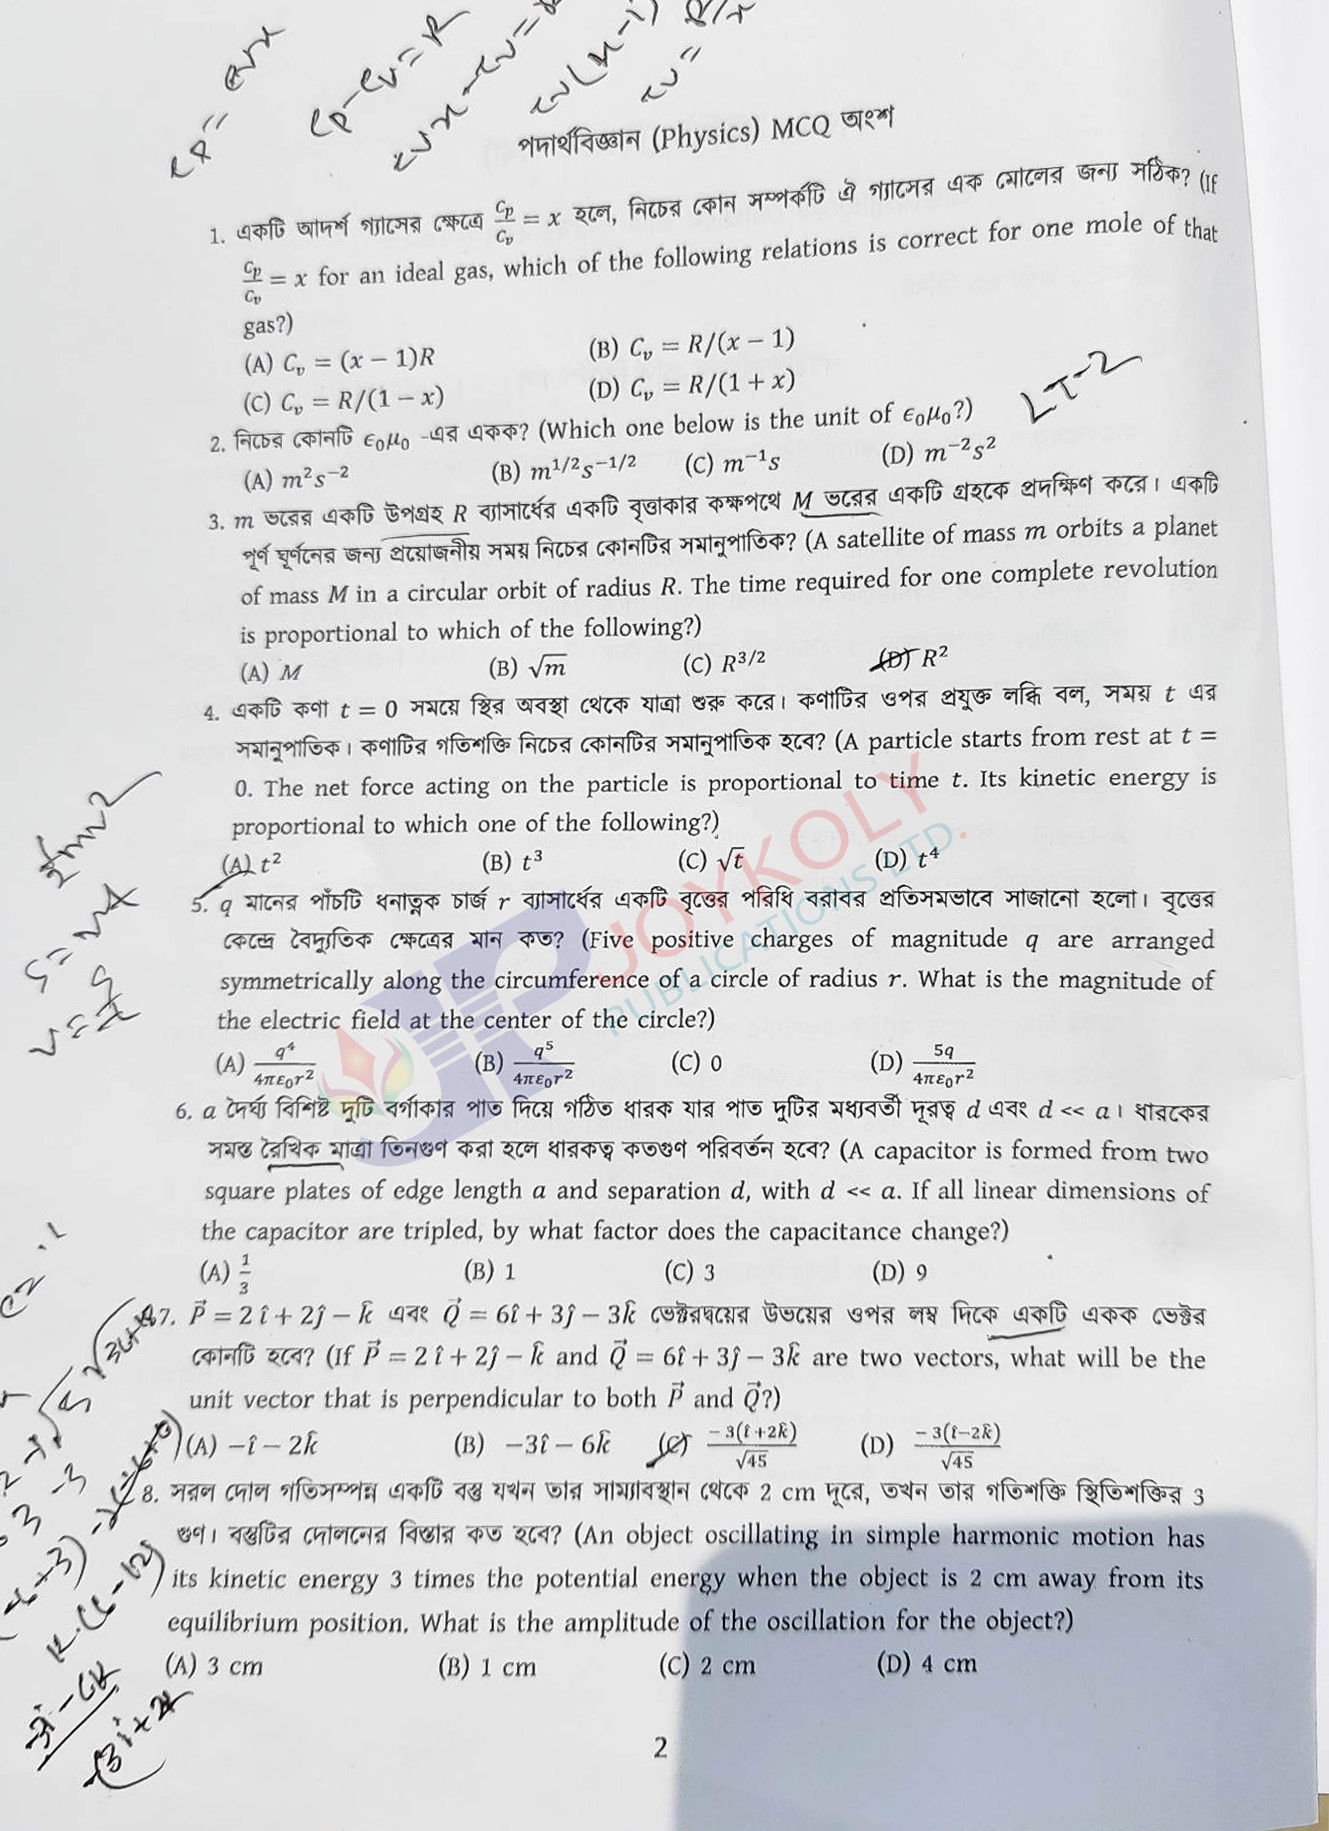 Cp - Cv = R
পদার্থবিজ্ঞান (Physics) MCQ অংশ
1. একটি আদর্শ গ্যাসের ক্ষেত্রে Cp/Cv = x হলে, নিচের কোন সম্পর্কটি ঐ গ্যাসের এক মোলের জন্য সঠিক? (If
Cp/Cv = x for an ideal gas, which of the following relations is correct for one mole of that
gas?)
(A) Cv = (x − 1)R (B) Cv = R/(x − 1)
(C) Cv = R/(1 − x) (D) Cv = R/(1 + x)
LT-2
2. নিচের কোনটি ϵ₀μ₀ -এর একক? (Which one below is the unit of ϵ₀μ₀?)
(A) m²s⁻² (B) m^1/2 s^−1/2 (C) m⁻¹s (D) m⁻²s²
3. m ভরের একটি উপগ্রহ R ব্যাসার্ধের একটি বৃত্তাকার কক্ষপথে M ভরের একটি গ্রহকে প্রদক্ষিণ করে। একটি
পূর্ণ ঘূর্ণনের জন্য প্রয়োজনীয় সময় নিচের কোনটির সমানুপাতিক? (A satellite of mass m orbits a planet
of mass M in a circular orbit of radius R. The time required for one complete revolution
is proportional to which of the following?)
(A) M (B) √m (C) R^3/2 (D) R²
4. একটি কণা t = 0 সময়ে স্থির অবস্থা থেকে যাত্রা শুরু করে। কণাটির ওপর প্রযুক্ত লব্ধি বল, সময় t এর
সমানুপাতিক। কণাটির গতিশক্তি নিচের কোনটির সমানুপাতিক হবে? (A particle starts from rest at t =
0. The net force acting on the particle is proportional to time t. Its kinetic energy is
proportional to which one of the following?)
(A) t² (B) t³ (C) √t (D) t⁴
JOYKOLY
PUBLICATIONS LTD.
5. q মানের পাঁচটি ধনাত্নক চার্জ r ব্যাসার্ধের একটি বৃত্তের পরিধি বরাবর প্রতিসমভাবে সাজানো হলো। বৃত্তের
কেন্দ্রে বৈদ্যুতিক ক্ষেত্রের মান কত? (Five positive charges of magnitude q are arranged
symmetrically along the circumference of a circle of radius r. What is the magnitude of
the electric field at the center of the circle?)
(A) q⁴/4πε₀r² (B) q⁵/4πε₀r² (C) 0 (D) 5q/4πε₀r²
6. a দৈর্ঘ্য বিশিষ্ট দুটি বর্গাকার পাত দিয়ে গঠিত ধারক যার পাত দুটির মধ্যবর্তী দূরত্ব d এবং d << a। ধারকের
সমস্ত রৈখিক মাত্রা তিনগুণ করা হলে ধারকত্ব কতগুণ পরিবর্তন হবে? (A capacitor is formed from two
square plates of edge length a and separation d, with d << a. If all linear dimensions of
the capacitor are tripled, by what factor does the capacitance change?)
(A) 1/3 (B) 1 (C) 3 (D) 9
7. P⃗ = 2î + 2ĵ − k̂ এবং Q⃗ = 6î + 3ĵ − 3k̂ ভেক্টরদ্বয়ের উভয়ের ওপর লম্ব দিকে একটি একক ভেক্টর
কোনটি হবে? (If P⃗ = 2î + 2ĵ − k̂ and Q⃗ = 6î + 3ĵ − 3k̂ are two vectors, what will be the
unit vector that is perpendicular to both P⃗ and Q⃗?)
(A) −î − 2k̂ (B) −3î − 6k̂ (C) −3(î+2k̂)/√45 (D) −3(î−2k̂)/√45
8. সরল দোল গতিসম্পন্ন একটি বস্তু যখন তার সাম্যাবস্থান থেকে 2 cm দূরে, তখন তার গতিশক্তি স্থিতিশক্তির 3
গুণ। বস্তুটির দোলনের বিস্তার কত হবে? (An object oscillating in simple harmonic motion has
its kinetic energy 3 times the potential energy when the object is 2 cm away from its
equilibrium position. What is the amplitude of the oscillation for the object?)
(A) 3 cm (B) 1 cm (C) 2 cm (D) 4 cm
2